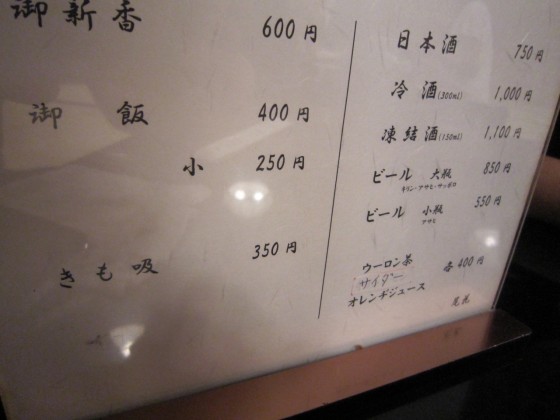 御新香 600円
御飯 400円
小 250円
きも吸 350円
日本酒 750円
冷酒(300ml) 1,000円
凍結酒(150ml) 1,100円
ビール 大瓶 850円
キリン・アサヒ・サッポロ
ビール 小瓶 550円
アサヒ
ウーロン茶
サイダー 各400円
オレンヂジュース
尾花